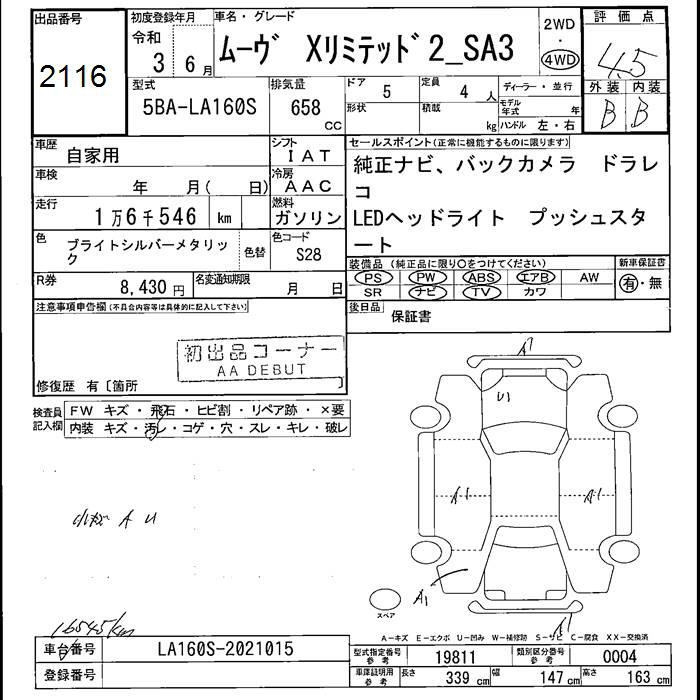 出品番号
2116
初度登録年月
令和
3 6月
車名・グレード
ムーヴ Xリミテッド2_SA3
2WD
・
4WD
評価点
4.5
外装 内装
B B
型式
5BA-LA160S
排気量
658
cc
ドア
5
形状
定員
4 人
積載
kg
ディーラー・並行
モデル年式 年
ハンドル 左・右
車歴
自家用
シフト
IAT
車検
年 月( 日)
冷房
AAC
走行
1万6千546 km
燃料
ガソリン
色
ブライトシルバーメタリック
色替
色コード
S28
R券
8,430 円
名変通知期限
月 日
セールスポイント(正常に機能するものに限ります)
純正ナビ、バックカメラ ドラレ
コ
LEDヘッドライト プッシュスタ
ート
装備品(純正品に限り○をつけてください)
PS PW ABS エアB AW
SR ナビ TV カワ
新車保証書
有・無
後日品
保証書
注意事項申告欄(不具合内容等は具体的に記入して下さい)
初出品コーナー
AA DEBUT
修復歴 有〔箇所 〕
検査員
記入欄
FW キズ・飛石・ヒビ割・リペア跡・×要
内装 キズ・汚レ・コゲ・穴・スレ・キレ・破レ
小キズ A U
A1
U1
A1
A1
A1
A1
スペア
A-キズ E-エクボ U-凹み W-補修跡 S-サビ C-腐食 XX-交換済
16545km
車台番号
LA160S-2021015
登録番号
型式指定番号
参考
19811
類別区分番号
参考
0004
車庫証明用
参考
長さ
339 cm
幅
147 cm
高さ
163 cm